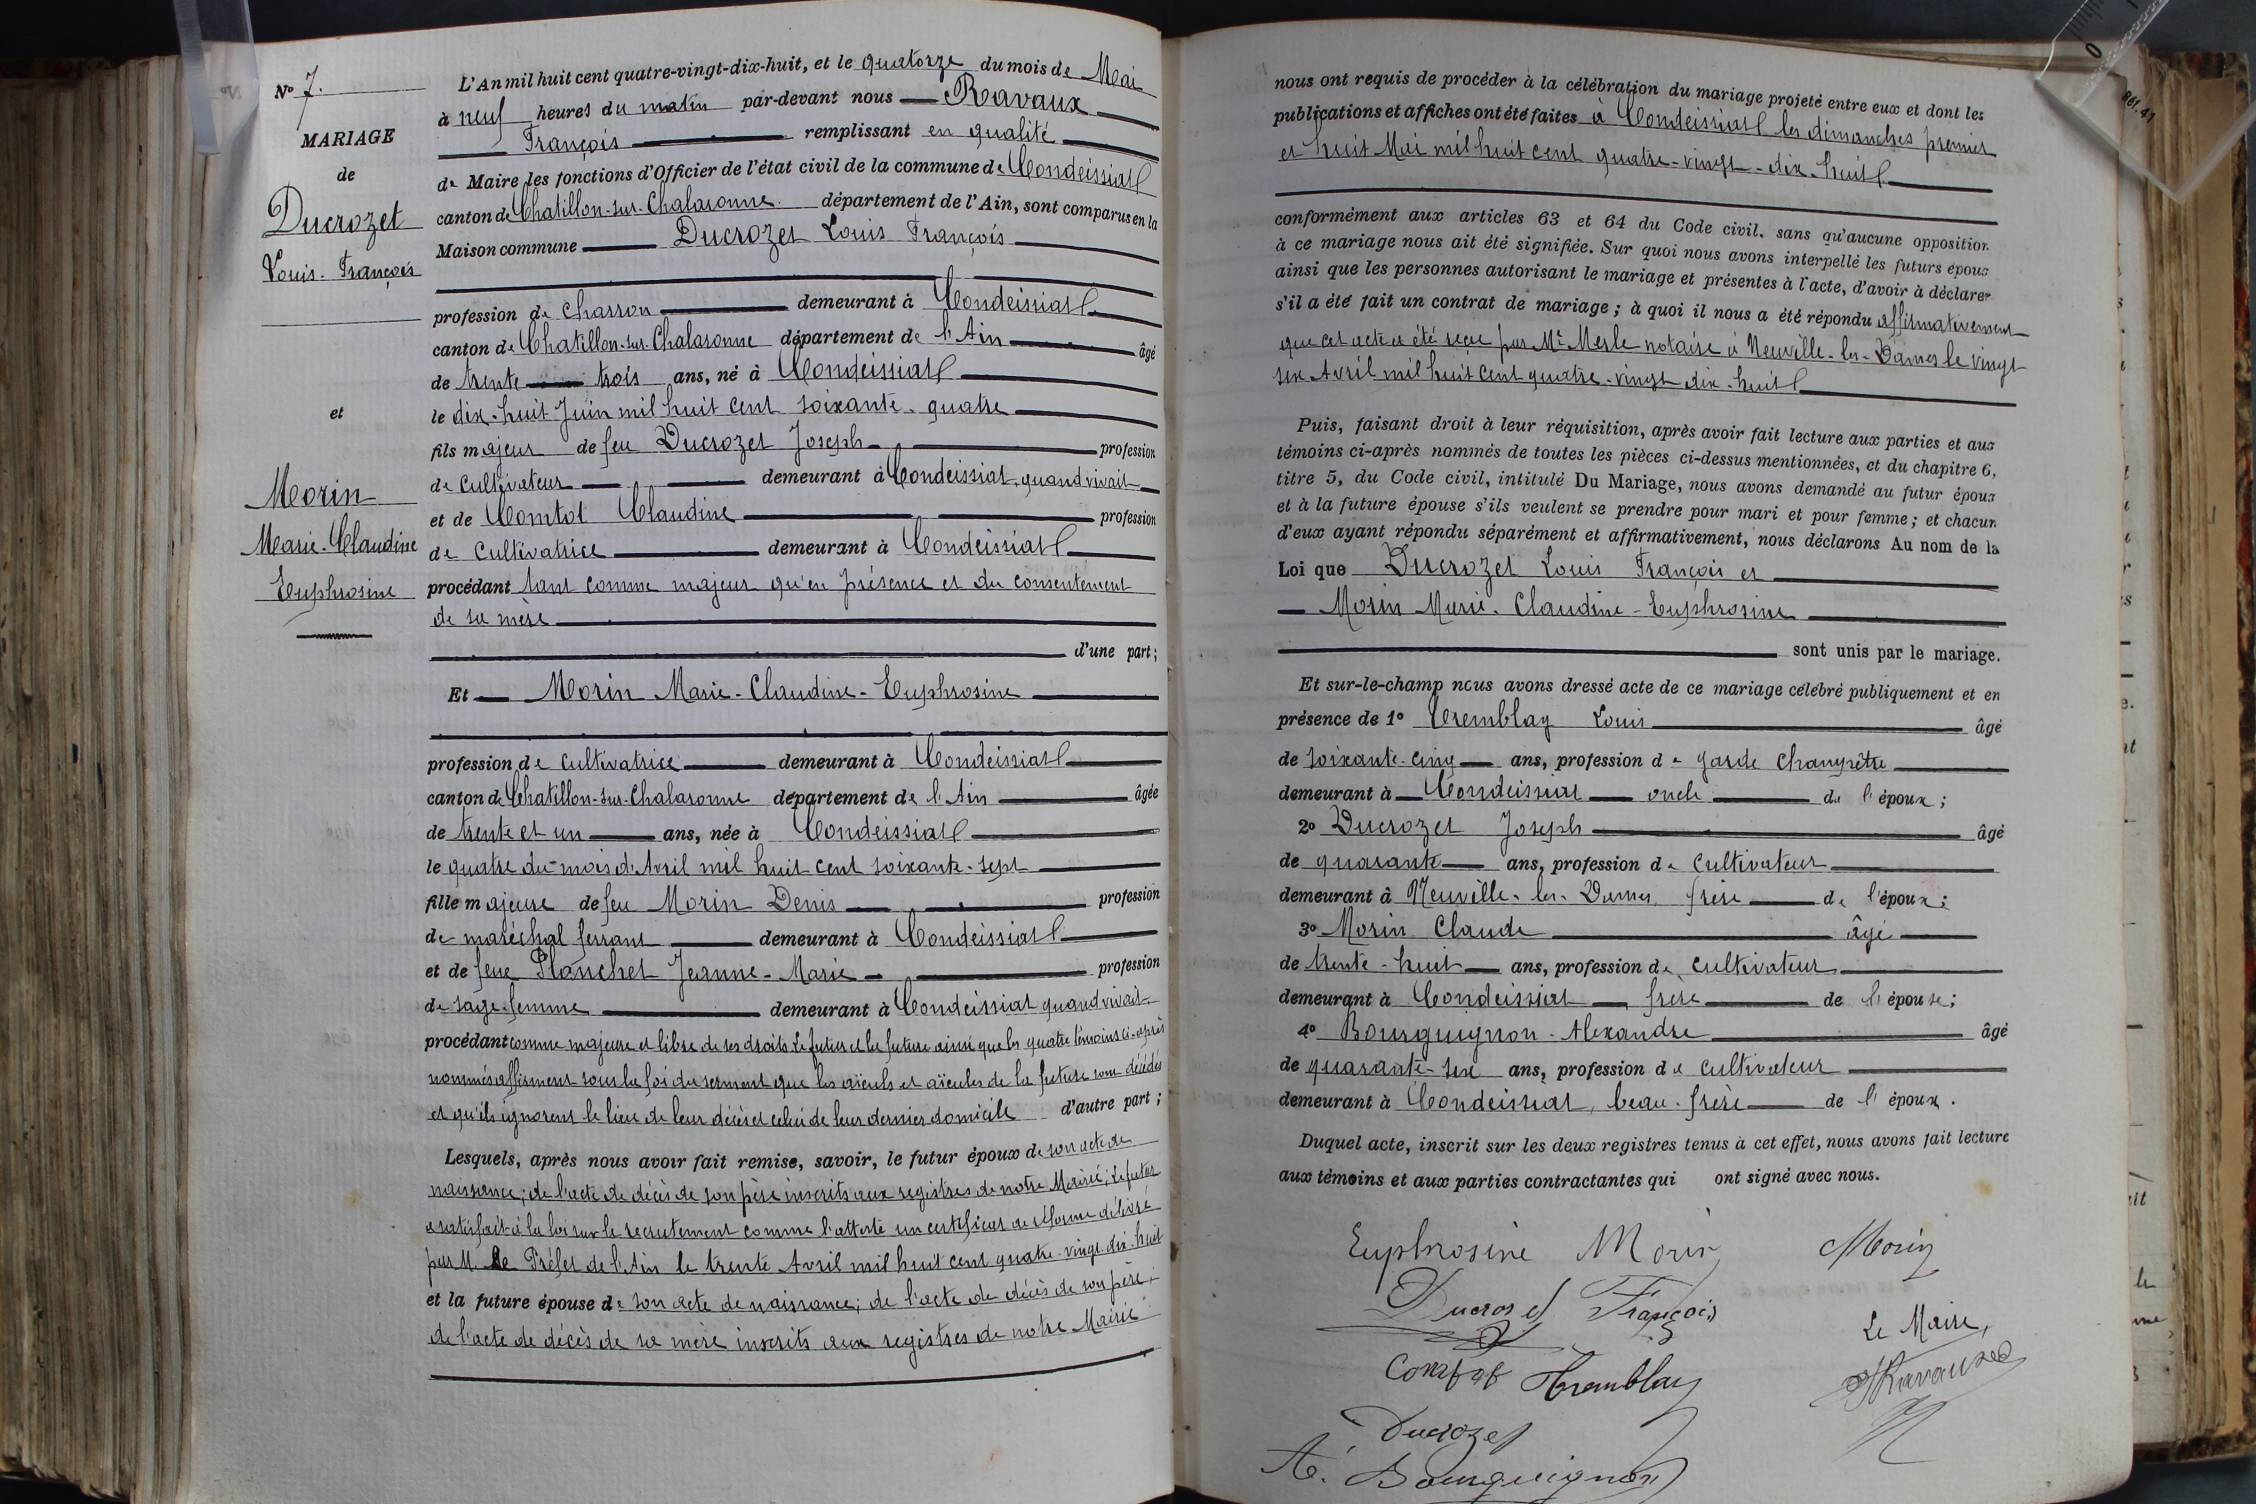 N° 7.
MARIAGE
de
Ducrozet
Louis-François
et
Morin
Marie-Claudine
Euphrosine
L'An mil huit cent quatre-vingt-dix-huit, et le quatorze du mois de Mai
à neuf heures du matin par-devant nous Ravaux
François remplissant en qualité
de Maire les fonctions d'Officier de l'état civil de la commune de Condeissiat
canton de Chatillon-sur-Chalaronne département de l'Ain, sont comparus en la
Maison commune Ducrozet Louis François
profession de charron demeurant à Condeissiat
canton de Chatillon-sur-Chalaronne département de l'Ain âgé
de trente trois ans, né à Condeissiat
le dix-huit Juin mil huit cent soixante-quatre
fils majeur de feu Ducrozet Joseph profession
de cultivateur demeurant à Condeissiat, quand vivait
et de Comtot Claudine profession
de cultivatrice demeurant à Condeissiat
procédant tant comme majeur qu'en présence et du consentement
de sa mère
d'une part;
Et Morin Marie-Claudine-Euphrosine
profession de cultivatrice demeurant à Condeissiat
canton de Chatillon-sur-Chalaronne département de l'Ain âgée
de trente et un ans, née à Condeissiat
le quatre du mois d'Avril mil huit cent soixante-sept
fille majeure de feu Morin Denis profession
de maréchal ferrant demeurant à Condeissiat
et de feue Planchet Jeanne-Marie profession
de sage-femme demeurant à Condeissiat quand vivait
procédant comme majeure et libre de ses droits. Le futur et la future ainsi que les quatre témoins ci-après
nommés affirment sous la foi du serment que les aïeuls et aïeules de la future sont décédés
et qu'ils ignorent le lieu de leur décès et celui de leur dernier domicile d'autre part;
Lesquels, après nous avoir fait remise, savoir, le futur époux de son acte de
naissance; de l'acte de décès de son père inscrits aux registres de notre Mairie; Le futur
a satisfait à la loi sur le recrutement comme l'atteste un certificat de réforme délivré
par M. Le Préfet de l'Ain le trente Avril mil huit cent quatre-vingt-dix-huit
et la future épouse de son acte de naissance; de l'acte de décès de son père;
de l'acte de décès de sa mère inscrits aux registres de notre Mairie
nous ont requis de procéder à la célébration du mariage projeté entre eux et dont les
publications et affiches ont été faites à Condeissiat les dimanches premier
et huit Mai mil huit cent quatre-vingt-dix-huit
conformément aux articles 63 et 64 du Code civil, sans qu'aucune opposition
à ce mariage nous ait été signifiée. Sur quoi nous avons interpellé les futurs époux
ainsi que les personnes autorisant le mariage et présentes à l'acte, d'avoir à déclarer
s'il a été fait un contrat de mariage; à quoi il nous a été répondu affirmativement
que cet acte a été reçu par Me Merle notaire à Neuville-les-Dames le vingt
six Avril mil huit cent quatre-vingt dix-huit
Puis, faisant droit à leur réquisition, après avoir fait lecture aux parties et aux
témoins ci-après nommés de toutes les pièces ci-dessus mentionnées, et du chapitre 6,
titre 5, du Code civil, intitulé Du Mariage, nous avons demandé au futur époux
et à la future épouse s'ils veulent se prendre pour mari et pour femme; et chacun
d'eux ayant répondu séparément et affirmativement, nous déclarons Au nom de la
Loi que Ducrozet Louis François et
Morin Marie-Claudine-Euphrosine
sont unis par le mariage.
Et sur-le-champ nous avons dressé acte de ce mariage célébré publiquement et en
présence de 1° Tremblay Louis âgé
de soixante-cinq ans, profession de garde champêtre
demeurant à Condeissiat oncle de l'époux;
2° Ducrozet Joseph âgé
de quarante ans, profession de cultivateur
demeurant à Neuville-les-Dames, frère de l'époux;
3° Morin Claude âgé
de trente-huit ans, profession de cultivateur
demeurant à Condeissiat frère de l'épouse;
4° Bourguignon-Alexandre âgé
de quarante-six ans, profession de cultivateur
demeurant à Condeissiat, beau-frère de l'époux.
Duquel acte, inscrit sur les deux registres tenus à cet effet, nous avons fait lecture
aux témoins et aux parties contractantes qui ont signé avec nous.
Euphrosine Morin Morin
Ducrozet François
Le Maire,
Comtet Tremblay
Ravaux
Ducrozet
A. Bourguignon